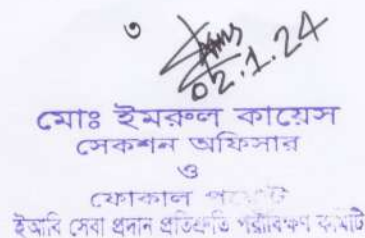 ৩
02.1.24
মোঃ ইমরুল কায়েস
সেকশন অফিসার
ও
ফোকাল পয়েন্ট
ইআবি সেবা প্রদান প্রতিশ্রুতি পরীবিক্ষণ কমিটি